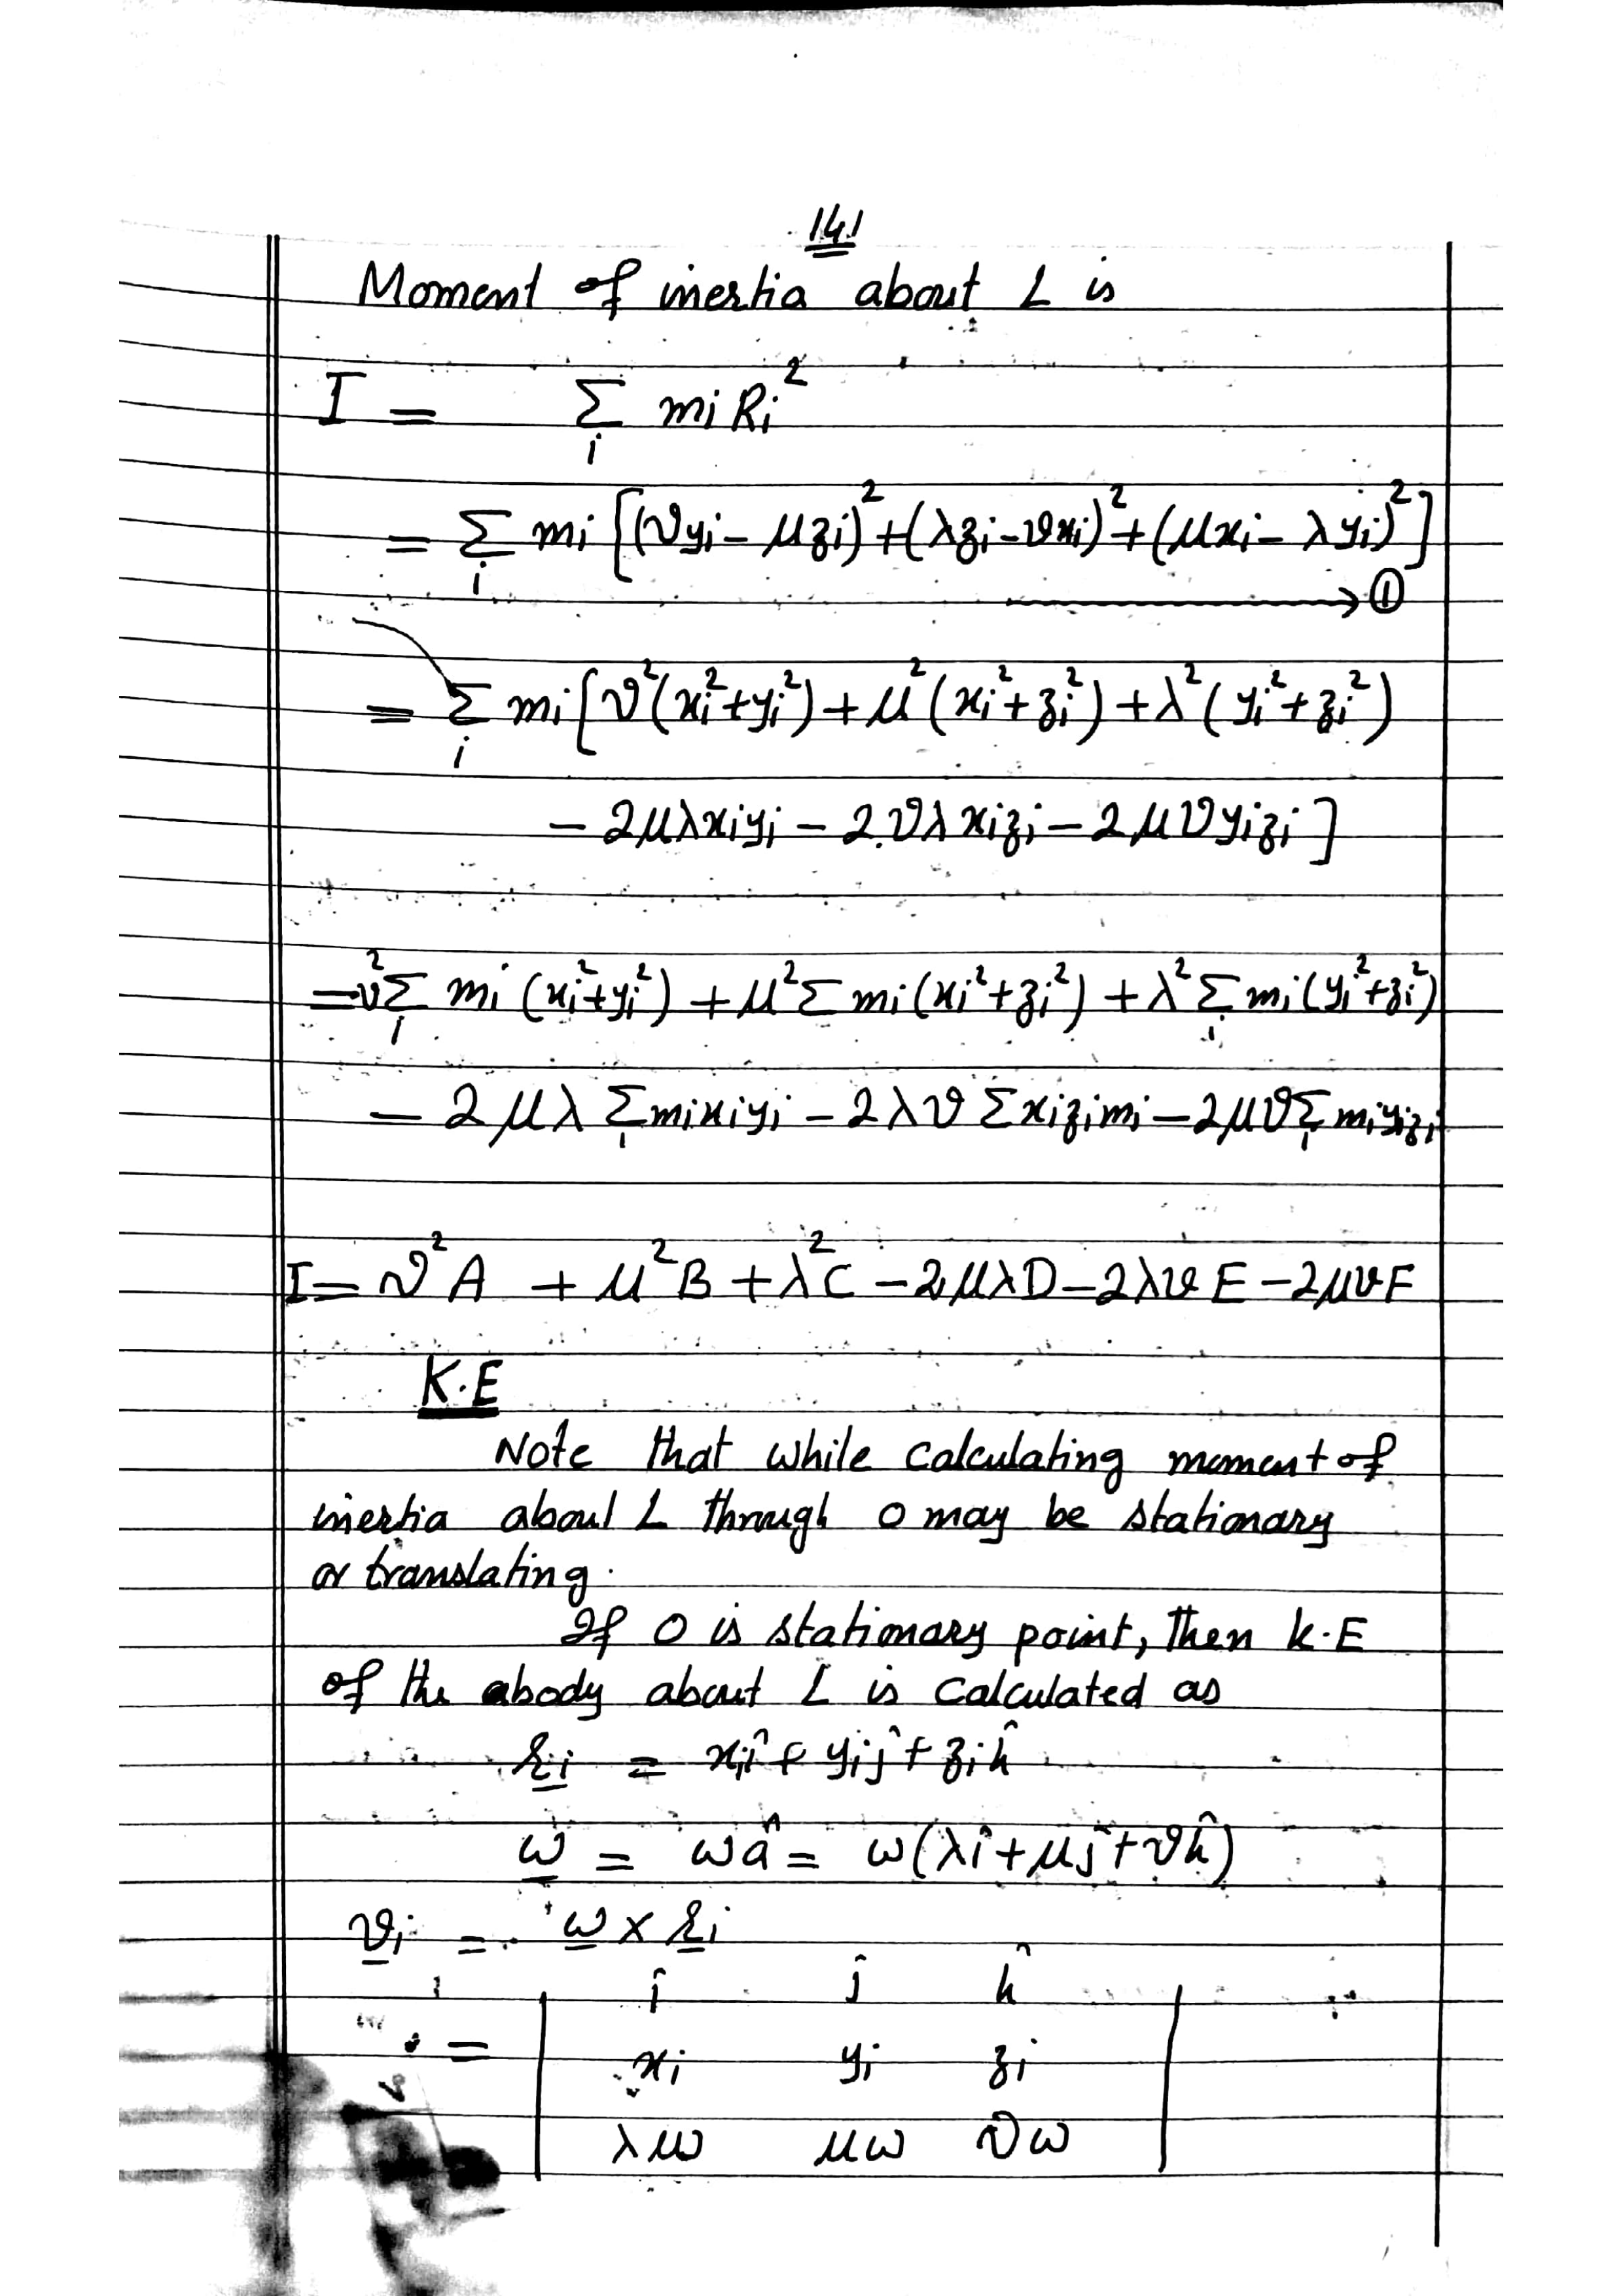 141
Moment of inertia about L is
I = Σ_i mi Ri²
= Σ_i mi [(νyi − μzi)² + (λzi − νxi)² + (μxi − λyi)²]
→ ①
= Σ_i mi [ν²(xi² + yi²) + μ²(xi² + zi²) + λ²(yi² + zi²)
− 2μλxiyi − 2νλxizi − 2μνyizi]
= ν²Σ_i mi (xi² + yi²) + μ²Σ mi (xi² + zi²) + λ²Σ_i mi (yi² + zi²)
− 2μλ Σ_i mixiyi − 2λν Σ xizimi − 2μνΣ_i miyizi
I = ν²A + μ²B + λ²C − 2μλD − 2λνE − 2μνF
K.E
Note that while calculating moment of
inertia about L through O may be stationary
or translating.
If O is stationary point, then K.E
of the abody about L is calculated as
ri = xiî + yiĵ + zik̂
ω = ωâ = ω(λî + μĵ + νk̂)
vi = ω × ri
î ĵ k̂
= | xi yi zi |
λω μω νω